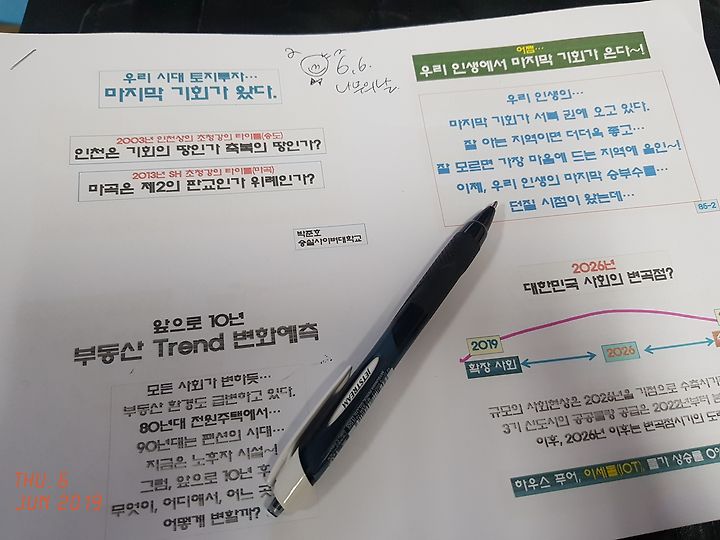 우리 시대 토지투자...
마지막 기회가 왔다.
6.6.
나무의날
2003년 인천상의 초청강의 타이틀(송도)
인천은 기회의 땅인가 축복의 땅인가?
2013년 SH 초청강의 타이틀(마곡)
마곡은 제2의 판교인가 위례인가?
박준호
숭실사이버대학교
어쩜...
우리 인생에서 마지막 기회가 온다~!
우리 인생의...
마지막 기회가 서북 권에 오고 있다.
잘 아는 지역이면 더더욱 좋고...
잘 모르면 가장 마음에 드는 지역에 올인~!
이제, 우리 인생의 마지막 승부수를...
던질 시점이 왔는데...
85-2
앞으로 10년
부동산 Trend 변화예측
모든 사회가 변하듯...
부동산 환경도 급변하고 있다.
80년대 전원주택에서...
90년대는 펜션의 시대...
지금은 노후자 시설~
그럼, 앞으로 10년 후
무엇이, 어디에서, 어느 곳
어떻게 변할까?
2026년
대한민국 사회의 변곡점?
2019
2026
확장 사회
규모의 사회현상은 2026년을 기점으로 수축시기
3기 신도시의 공공물량 공급은 2022년부터
이후, 2026년 이후는 변곡점시기의 도
하우스 푸어, 이세돌(IOT), 물가 상승률 0%
JETSTREAM
THU. 6
JUN 2019